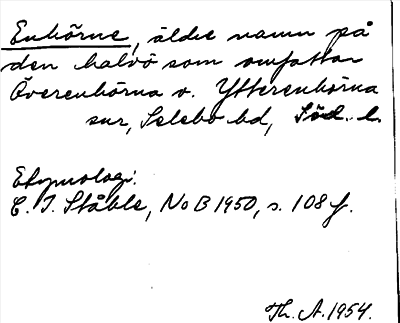 Enhörne, äldre namn på
den halvö som omfattar
Överenhörna o. Ytterenhörna
snr, Selebo hd, Söd. l.
Etymologi:
C. I. Ståhle, NoB 1950, s. 108 f.
Th. A. 1954.